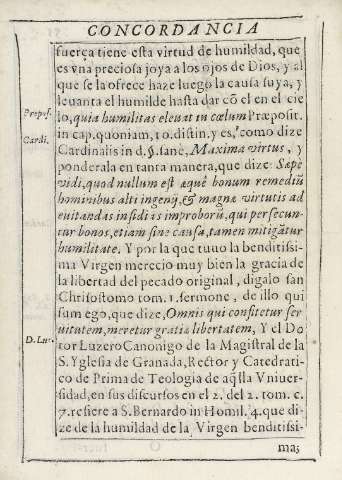 CONCORDANCIA
fuerça tiene esta virtud de humildad, que
es vna preciosa joya a los ojos de Dios, y al
que se la ofrece haze luego la causa suya, y
leuanta el humilde hasta dar cõ el en el cie
Prepos.
lo, quia humilitas eleuat in cœlum Præposit.
in cap. quoniam, 10. distin. y es, como dize
Cardi.
Cardinalis in d. §. sane, Maxima virtus, y
ponderala en tanta manera, que dize: Sæpe
vidi, quod nullum est æquè bonum remediũ
hominibus alti ingenij, & magnæ virtutis ad
euitandas insidias improborũ, qui persecun
tur bonos, etiam sine causa, tamen mitigãtur
humilitate. Y por la que tuuo la benditissi-
ma Virgen merecio muy bien la gracia de
la libertad del pecado original, digalo san
Chrisostomo tom. 1. sermone, de illo qui
sum ego, que dize, Omnis qui confitetur ser
uitutem, meretur gratiæ libertatem, Y el Do
D. Luz.
tor Luzero Canonigo de la Magistral de la
S. Yglesia de Granada, Rector y Catedrati
co de Prima de Teologia de aq̃lla Vniuer-
sidad, en sus discursos en el 2. del 2. tom. c.
7. refiere a S. Bernardo in Homil. 4. que di
ze de la humildad de la Virgen benditissi-
ma;